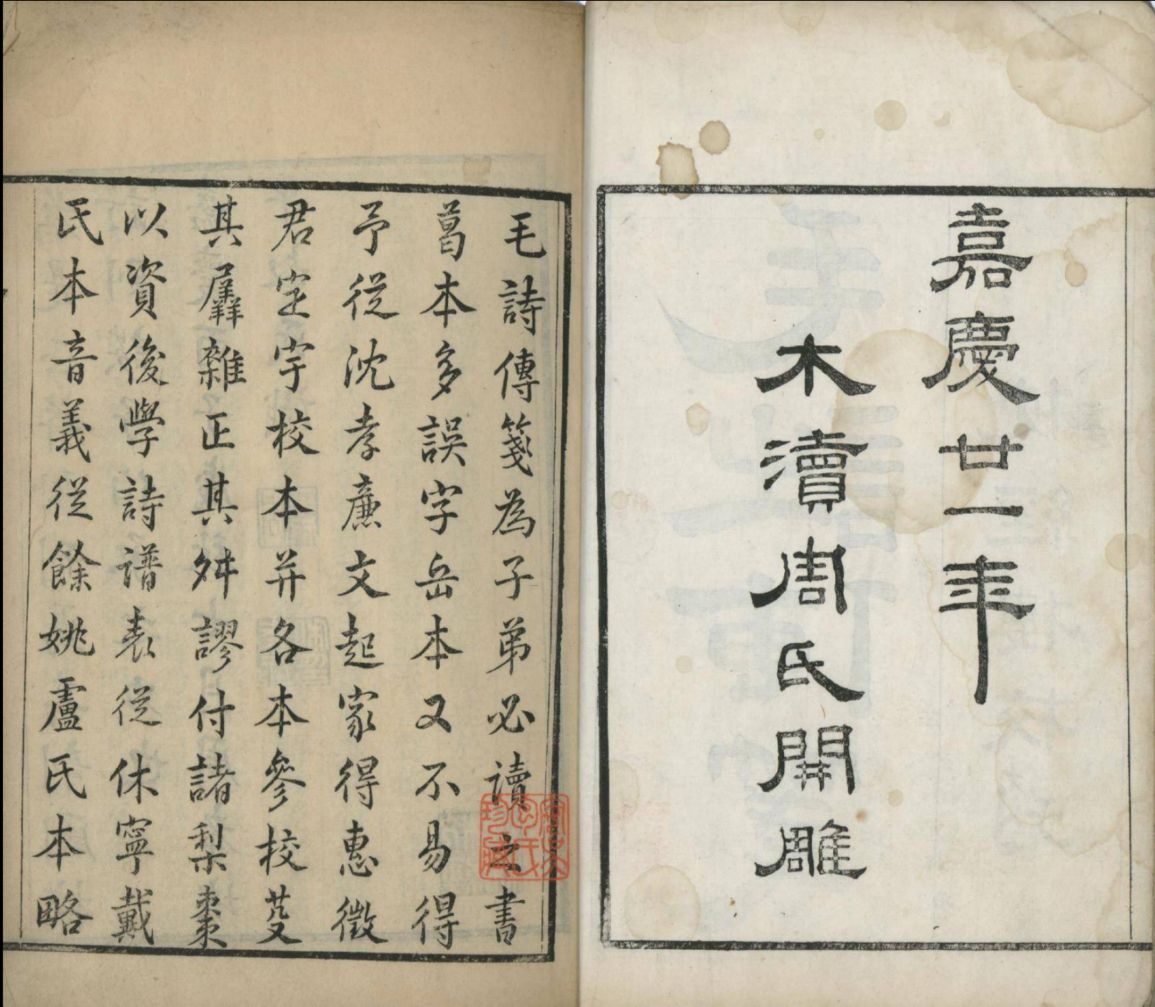 嘉慶廿一年
木瀆周氏開雕
毛詩傳箋為子弟必讀之書
葛本多誤字岳本又不易得
予從沈孝廉文起家得惠徵
君定宇校本并各本參校芟
其羼雜正其舛謬付諸梨棗
以資後學詩譜表從休寧戴
氏本音義從餘姚盧氏本略